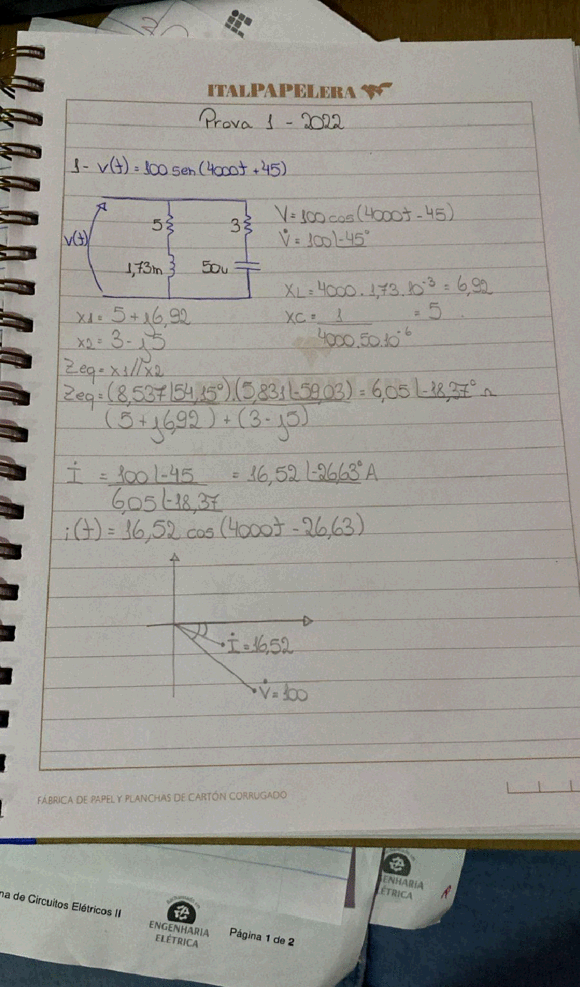 ITALPAPELERA
Prova 1 - 2022
1- v(t) = 100 sen(4000t + 45)
V = 100 cos(4000t - 45)
V̇ = 100∠-45°
v(t)
5
3
1,73m
50u
XL = 4000 . 1,73 . 10⁻³ = 6,92
XC = 1 = 5
4000.50.10⁻⁶
x1 = 5 + j6,92
x2 = 3 - j5
Zeq = x1//x2
Zeq = (8,537∠54,15°).(5,831∠-59,03) = 6,05∠-18,37° Ω
(5 + j6,92) + (3 - j5)
İ = 100∠-45 = 16,52∠-26,63° A
6,05∠-18,37
i(t) = 16,52 cos(4000t - 26,63)
İ = 16,52
V̇ = 100
FÁBRICA DE PAPEL Y PLANCHAS DE CARTÓN CORRUGADO
na de Circuitos Elétricos II
ENGENHARIA
ELÉTRICA
Página 1 de 2
ENHARIA
ÉTRICA